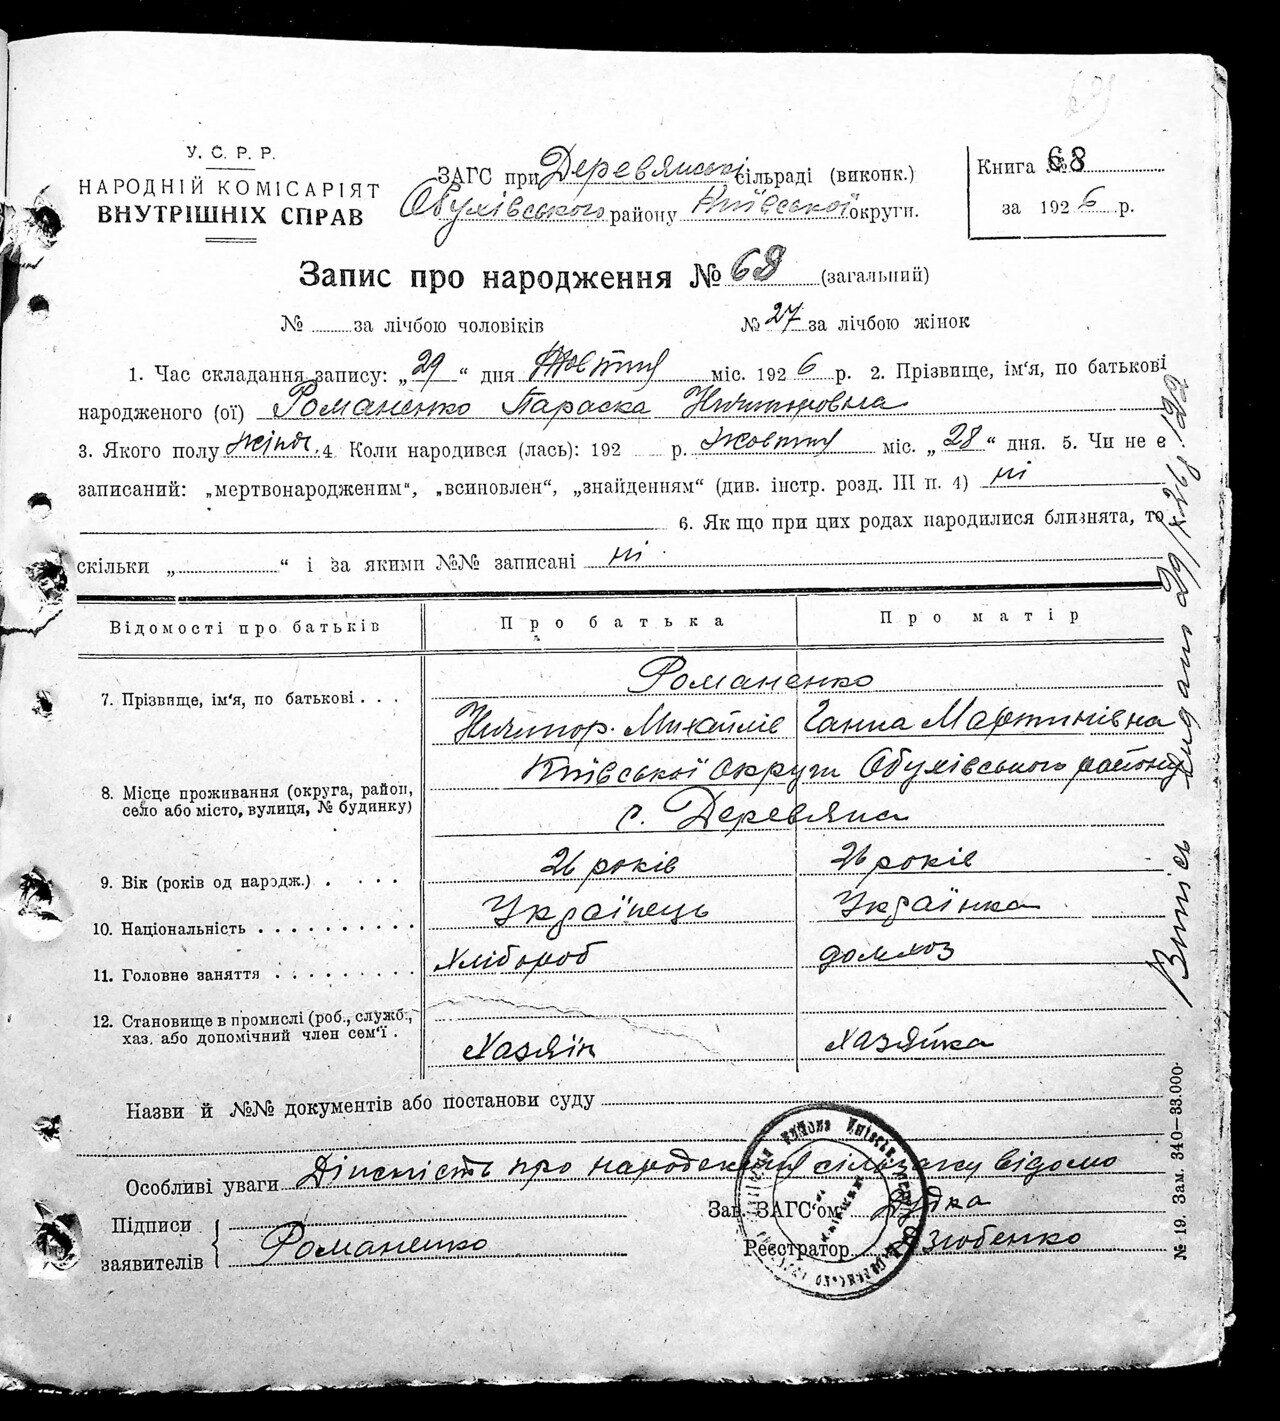 69
У. С. Р. Р.
НАРОДНІЙ КОМІСАРІЯТ
ВНУТРІШНІХ СПРАВ
ЗАГС при Деревянські сільраді (виконк.)
Обухівського району Київської округи.
Книга № 68
за 1926 р.
Запис про народження № 68 (загальний)
№ за лічбою чоловіків
№ 27 за лічбою жінок
1. Час складання запису: „29“ дня Жовтня міс. 1926 р. 2. Прізвище, ім‘я, по батькові
народженого (ої) Романенко Параска Ничипоровна
3. Якого полу жіноч. 4. Коли народився (лась): 192 р. жовтня міс. „28“ дня. 5. Чи не є
записаний: „мертвонародженим“, „всиновлен“, „знайденням“ (див. інстр. розд. III п. 4) ні
6. Як що при цих родах народилися близнята, то
скільки „ “ і за якими №№ записані ні
Відомості про батьків
Про батька
Про матір
7. Прізвище, ім‘я, по батькові . . .
Романенко
Ничипор. Михайлів
Ганна Мартинівна
8. Місце проживання (округа, район,
село або місто, вулиця, № будинку)
Київської округи Обухівського району
с. Деревяна
9. Вік (років од народж.) . . . .
26 років
26 років
10. Національність . . . . . . . . . .
Українець
Українка
11. Головне заняття . . . . . . . . .
Хлібороб
домхоз
12. Становище в промислі (роб., служб.,
хаз. або допомічний член сем‘ї .
Хазяїн
хазяйка
Назви й №№ документів або постанови суду
Особливі уваги Дійсність про народження сільраду відомо
Підписи
заявителів
Романенко
Зав. ЗАГС‘ом Дудка
Реєстратор Зюбенко
Випись видана 29/X 26 р. 122
№ 19. Зам. 340—33.000.